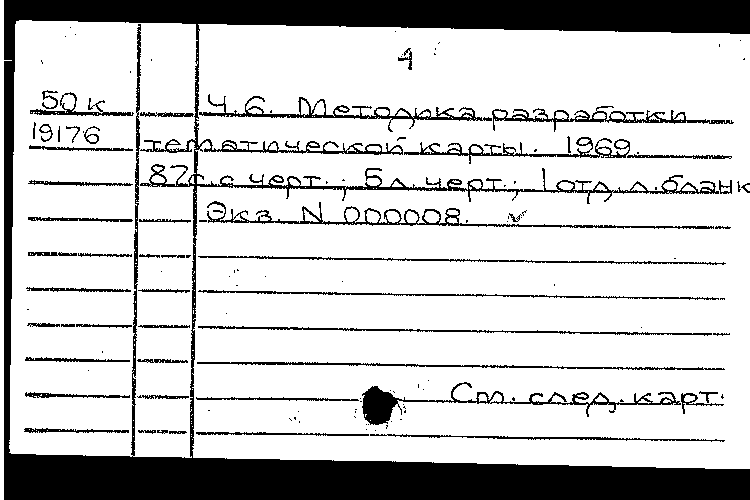 4
50к Ч.6. Методика разработки
19176 тематической карты. 1969.
87с. с черт.; 5 л. черт.; 1 отд. л. бланк
Экз. N 000008.
См. след. карт.